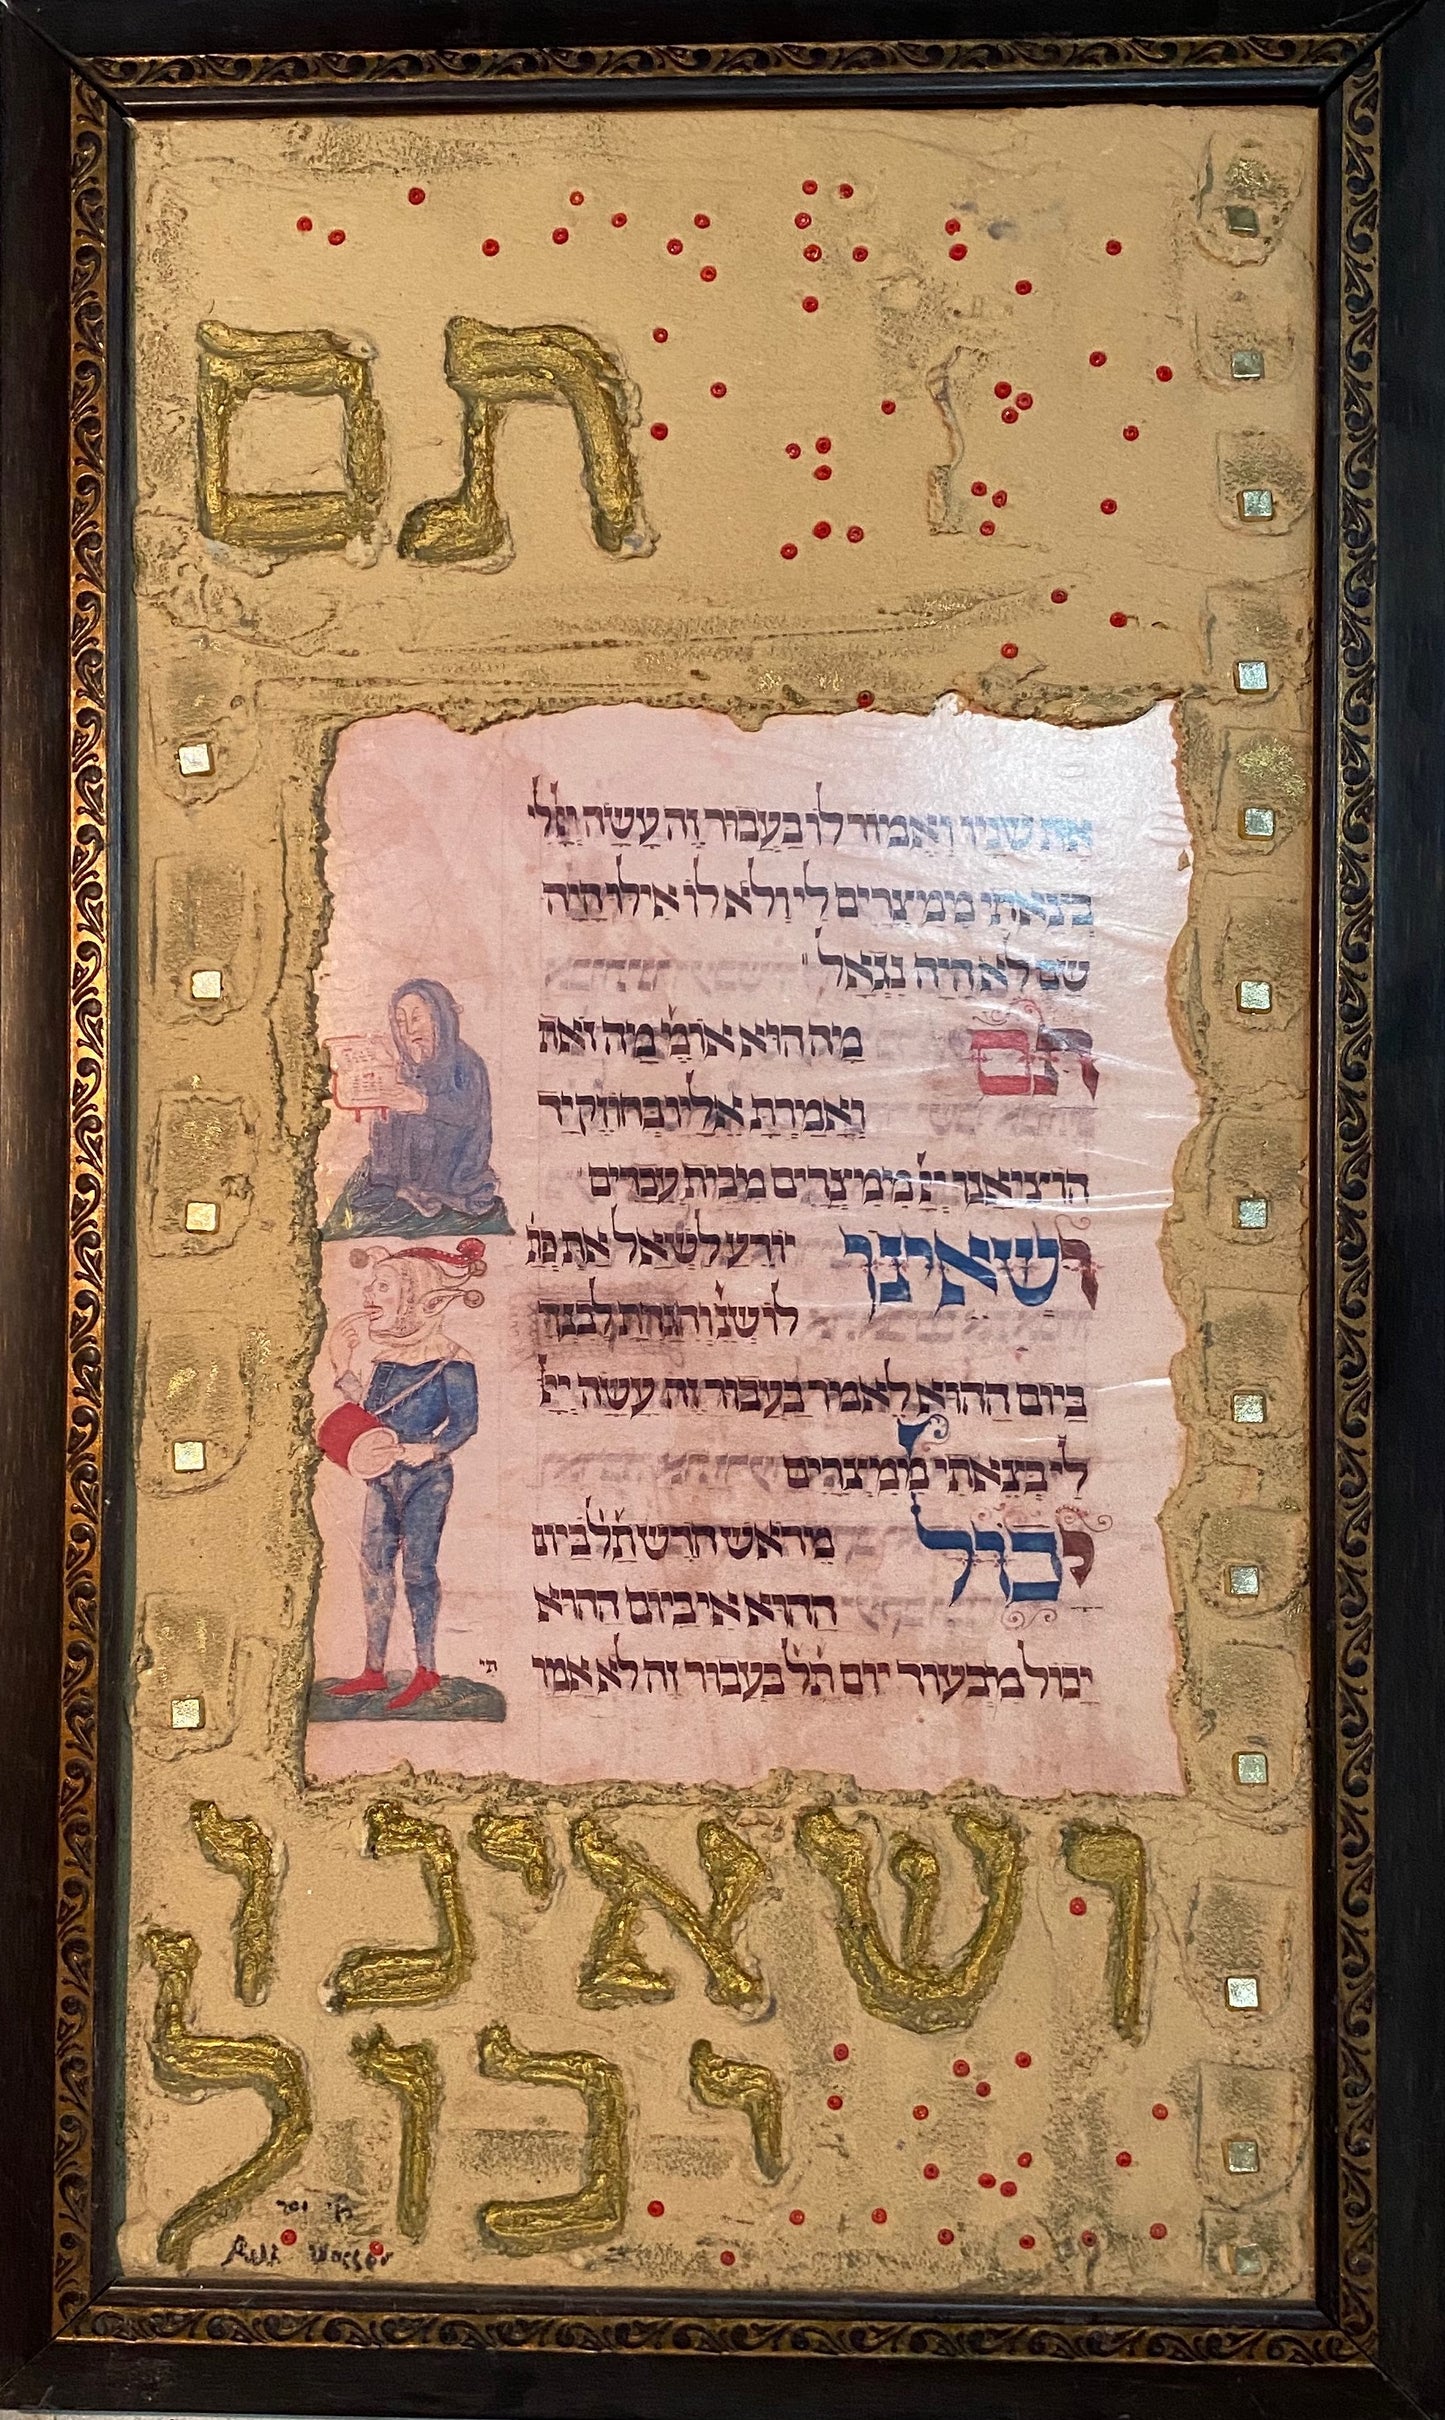 תם
את שניו וְאֱמוֹר לוֹ בַּעֲבוּר זֶה עָשָׂה יְיָ לִי
בְּצֵאתִי מִמִּצְרַיִם לִי וְלֹא לוֹ אִילוּ הָיָה
שָׁם לֹא הָיָה נִגְאָל
תם מַה הוּא אוֹמֵ' מַה זֹאת
וְאָמַרְתָּ אֵלָיו בְּחוֹזֶק יָד
הוֹצִיאָנוּ יְיָ מִמִּצְרַיִם מִבֵּית עֲבָדִים
ושאינו יוֹדֵעַ לִשְׁאַל אַתְּ פְּתַ'
לוֹ שֶׁנ' וְהִגַּדְתָּ לְבִנְךָ
בַּיּוֹם הַהוּא לֵאמֹר בַּעֲבוּר זֶה עָשָׂה יְיָ
לִי בְּצֵאתִי מִמִּצְרַיִם
יכול מֵרֹאשׁ חֹדֶשׁ תַּ'לְ' בַּיּוֹם
הַהוּא אִי בַּיּוֹם הַהוּא
יָכוֹל מִבְּעוֹד יוֹם תַּ'לְ' בַּעֲבוּר זֶה לֹא אָמַ'
תי
ושאינו
יכול